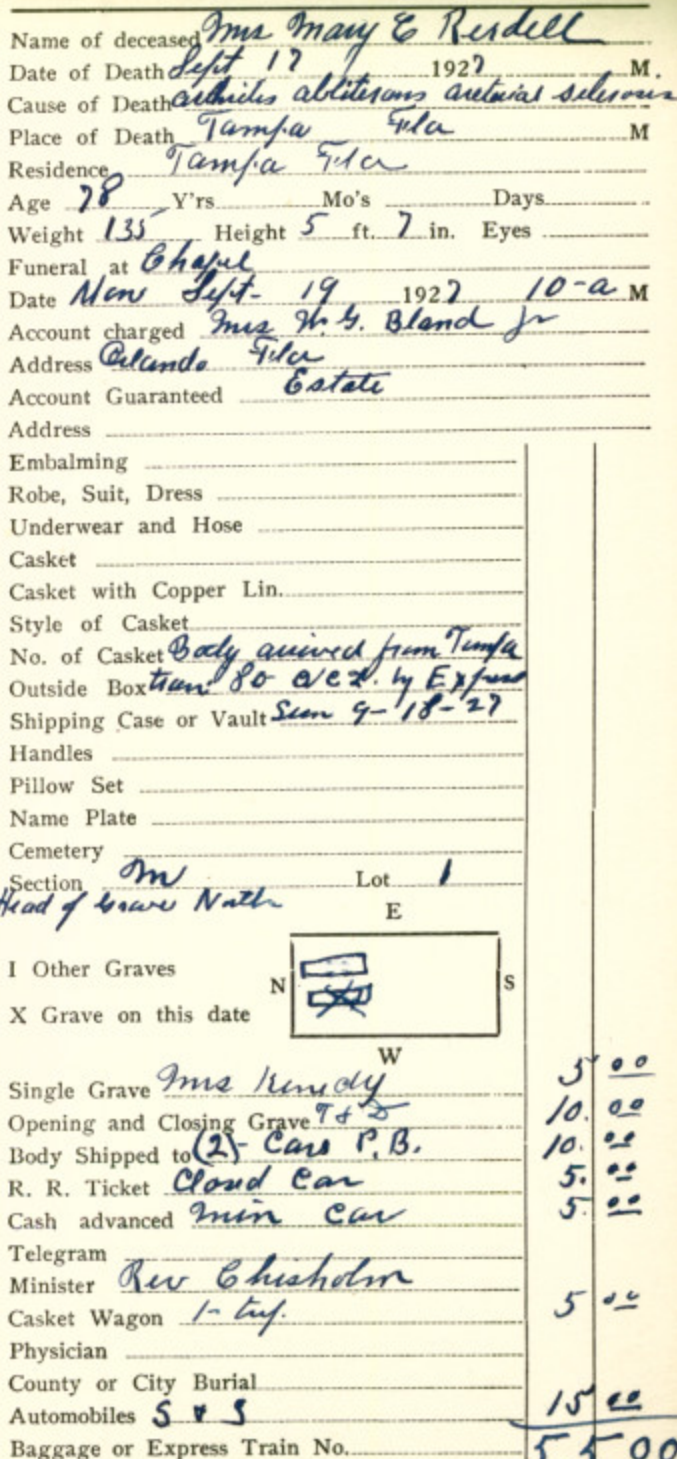 Name of deceased Mrs Mary E Resdell
Date of Death Sept 17 1927 M.
Cause of Death arterial
Place of Death Tampa Fla M
Residence Tampa Fla
Age 78 Y'rs Mo's Days
Weight 135 Height 5 ft. 7 in. Eyes
Funeral at Chapel
Date Mon Sept- 19 1927 10-a M
Account charged Mrs W. G. Bland Jr
Address Orlando Fla
Account Guaranteed Estate
Address
Embalming
Robe, Suit, Dress
Underwear and Hose
Casket
Casket with Copper Lin.
Style of Casket
No. of Casket Body arrived from Tampa
Outside Box train 80 by Express
Shipping Case or Vault Sun 9-18-27
Handles
Pillow Set
Name Plate
Cemetery
Section M Lot 1
Head of Grave North
E
I Other Graves
N S
X Grave on this date
W
Single Grave Mrs Kenedy 5 00
Opening and Closing Grave T & D 10. 00
Body Shipped to (2)- Cars P.B. 10. 00
R. R. Ticket Closed Car 5. 00
Cash advanced Min Car 5. 00
Telegram
Minister Rev Chisholm
Casket Wagon 1- 5 00
Physician
County or City Burial
Automobiles S & S 15 00
Baggage or Express Train No. 55 00